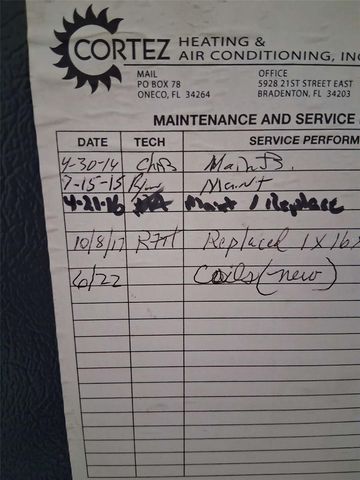 CORTEZ HEATING &
AIR CONDITIONING, INC
MAIL OFFICE
PO BOX 78 5928 21ST STREET EAST
ONECO, FL 34264 BRADENTON, FL 34203
MAINTENANCE AND SERVICE
DATE TECH SERVICE PERFORM
4-30-14
7-15-15 Maint
4-21-16 Maint / Replace
10/8/17 Replaced 1X16X
6/22 Coils (new)